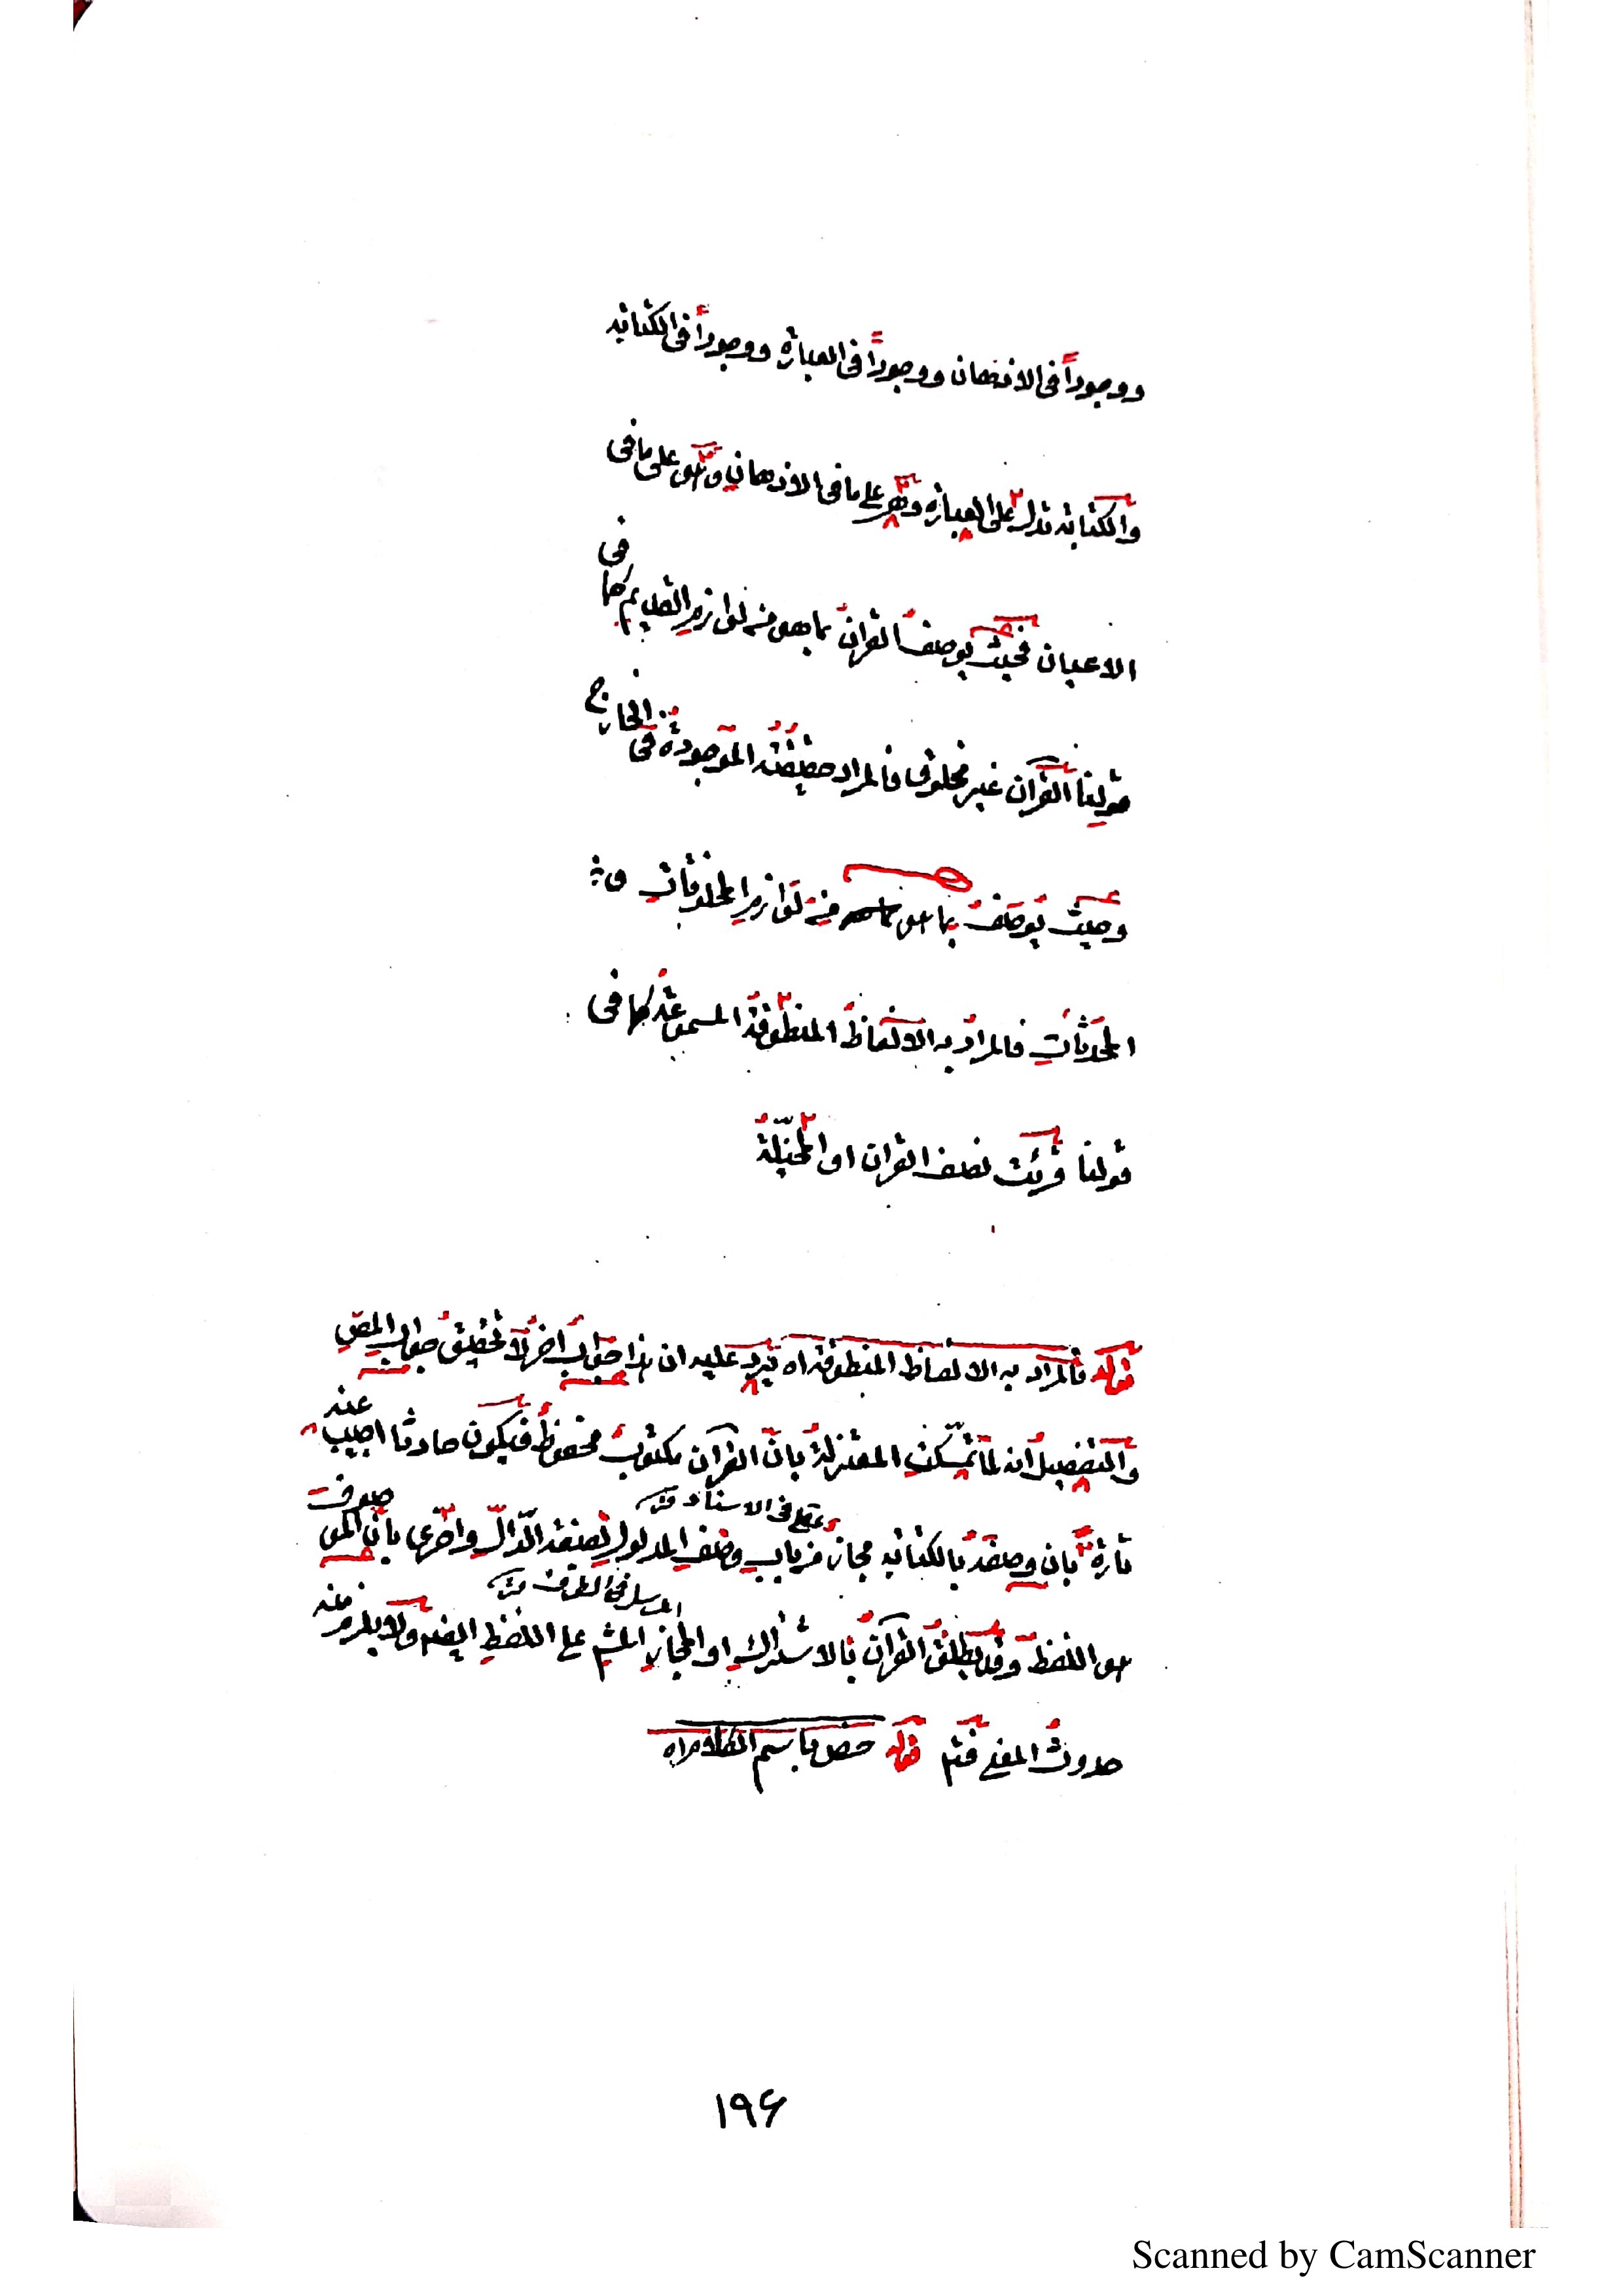 ووجوداً فى الاذهان ووجوداً فى العبارة ووجوداً فى الكتابة
والكتابة تدل على العبارة وهى على ما فى الاذهان وهو على ما فى
الاعيان فحيث يوصف القرآن بما هو من لوازم القديم كما فى
قولنا القرآن غير مخلوق فالمراد حقيقته الموجودة فى الخارج
وحيث يوصف بما هو من لوازم المخلوقات و
المحدثات فالمراد به الالفاظ المنطوقة المسموعة كما فى
قولنا قرئت نصف القرآن او المخيّلة
قوله فالمراد به الالفاظ المنطوقة اه يرد عليه ان هذا جواب اخر لا تحقيق جواب المص
والتفصيل انه لما تمسّكت المعتزلة بانّ القرآن مكتوب محفوظ فيكون حادثا اجيب عنه
تارة بان وصفه بالكتابة مجاز من باب وصف المدلول بصفة الدّالّ واخرى بانّ الموصوف
هو اللفظ وقد يطلق القرآن بالاشتراك او المجاز المش على اللفظ ايضا ولا يلزم منه
حدوث المعنى فتم قوله خص باسم الكلام اه
١٩۶
Scanned by CamScanner